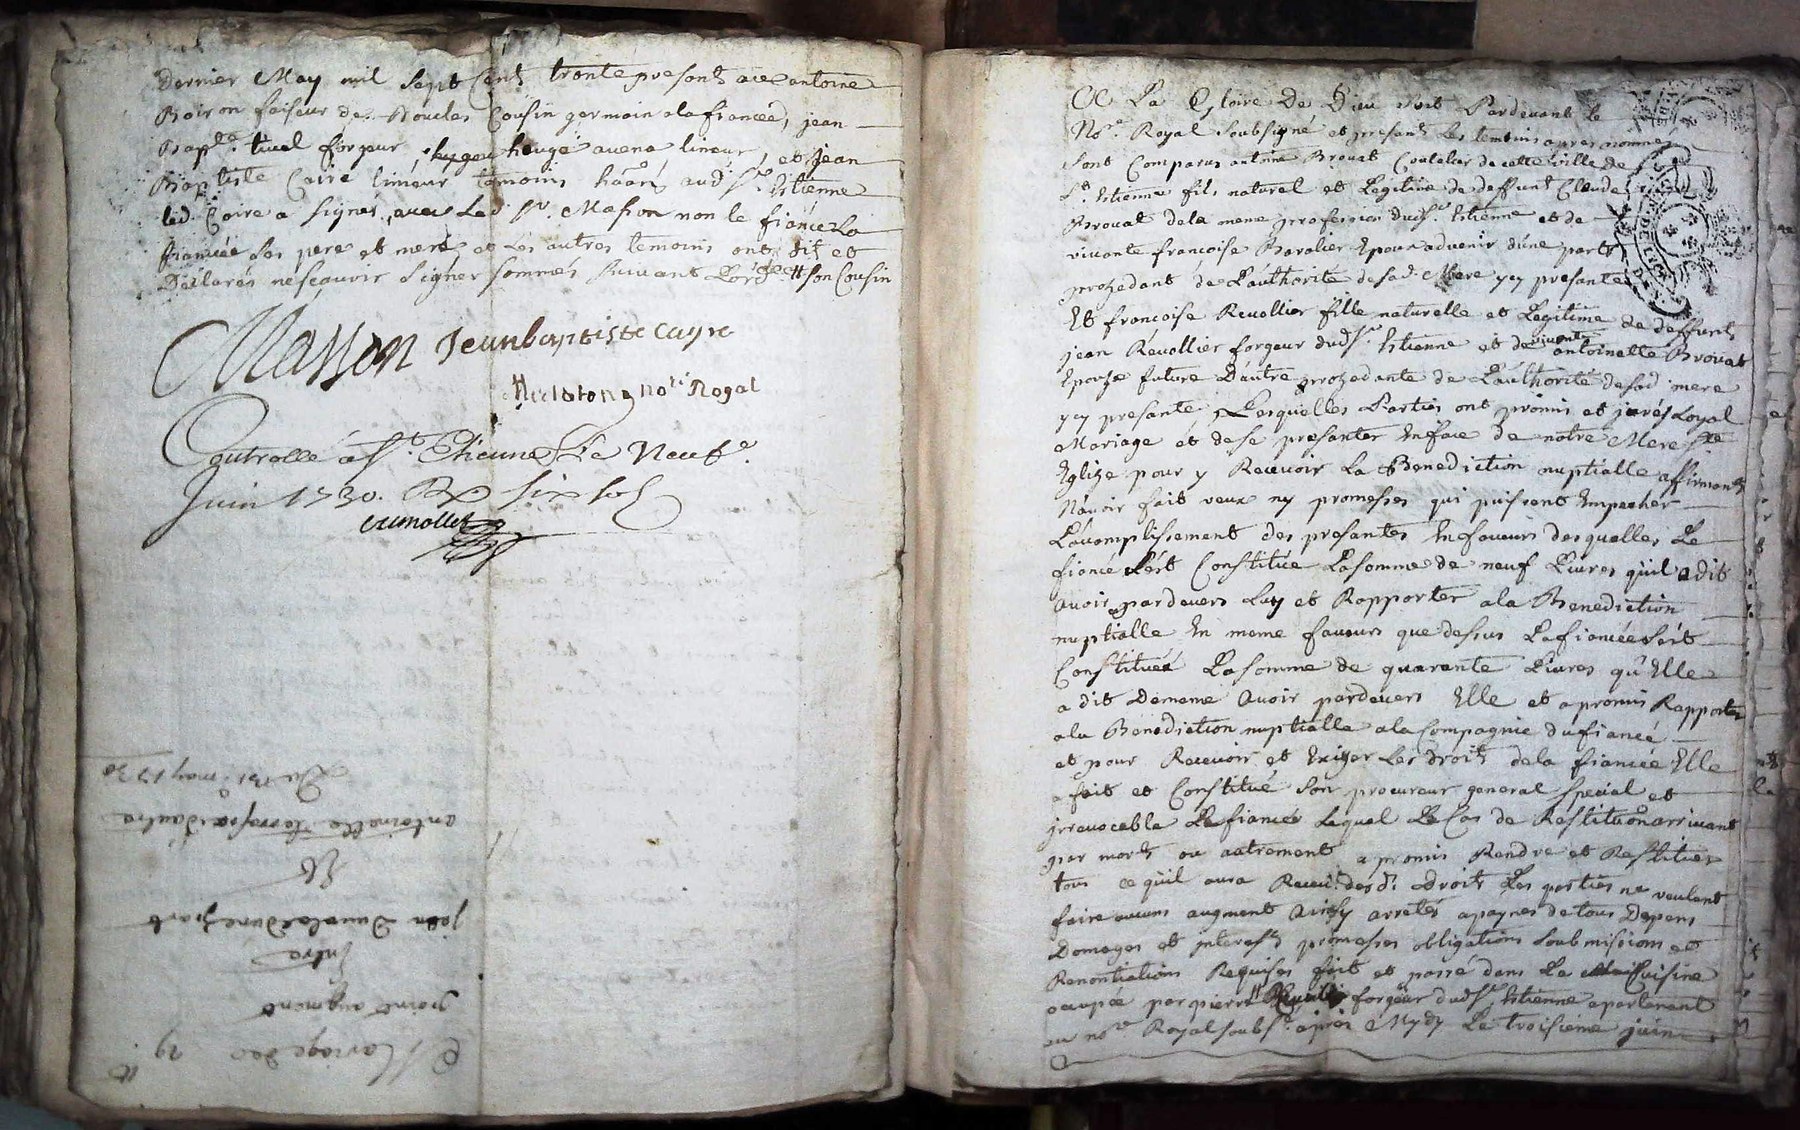 Dernier May mil sept Cent trente presents sieur antoine
Boiron faiseur de Boucles Cousin germain ala fiancée, jean
Bapte. tivel forgeur, hugé avena limeur, et Jean
Baptiste Caire limeur temoins audt. St. Estienne
led. Caire a signer, avec Led. Sr. Masson non le fiancé La
fiancée Ses pere et mere et Les autres temoins ont dit et
Déclarés ne sçavoir Signer sommés suivant L'ordce. # son Cousin
Masson Jeanbaptiste cayre
nore. Royal
Controllé a St. Etienne Le Neufe.
Juin 1730. Rx six sols
Ce La Gloire De Dieu soit Pardevant le
Nore. Royal soubsigné et presents Les temoins apres nommés
sont Comparus antoine Brouat Coutelier de cette ville de
St. Estienne fils naturel et Legitime de deffunt Claude
Brouat dela meme profession dudt. St. Estienne et de
vivante francoise Baralier Epoux advenir d'une part
procedant de L'authorité de sad. Mere icy presante
Et francoise Revollier fille naturelle et Legitime de deffunt
jean Révollier forgeur dudt. St. Estienne et de vivante antoinette Brouat
Epouze future D'autre procedante de L'authorité de sad. mere
icy presante, Lesquelles Parties ont promis et jurés Loyal
Mariage et de se presanter En face de notre Mere Ste.
Eglize pour y Recevoir La Benediction nuptialle affirmants
N'avoir fait veux ny promesses qui puissent Empecher
L'accomplissement des presantes En faveurs desquelles Le
fiancé s'est Constitué La somme de neuf Livres qu'il a dit
avoir pardevers Luy et Rapporter ala Benediction
nuptialle En meme faveurs que dessus La fiancée s'est
Constituée La somme de quarante Livres qu'Elle
a dit Dememe Avoir pardevers Elle et a promis Rapporter
ala Benediction nuptialle ala Compagnie du fiancé
et pour Recevoir et Exiger Les droits dela fiancée Elle
a fait et Constitué son procureur general special et
irrevocable Le fiancé Lequel Le Cas de Restitution arrivant
par mort ou autrement a promis Rendre et Restituer
tous ce qu'il aura Receu des d. droits Les parties ne voulant
faire aucuns augment Ainsy arretés a paynes de tous Depens
Domages et interests promesses obligations soubmissions et
Renontiations Requises fait et passé dans La Cuisine
occupée par pierre forgeur dudt. St. Estienne apartenant
au nore. Royal soubsé. apres Mydy Le troisieme juin
Mariage des 19
point augment
Entre
jean Duvala d'une part
Et
antoinette Terrasse d'autre
Du 31. may 1730